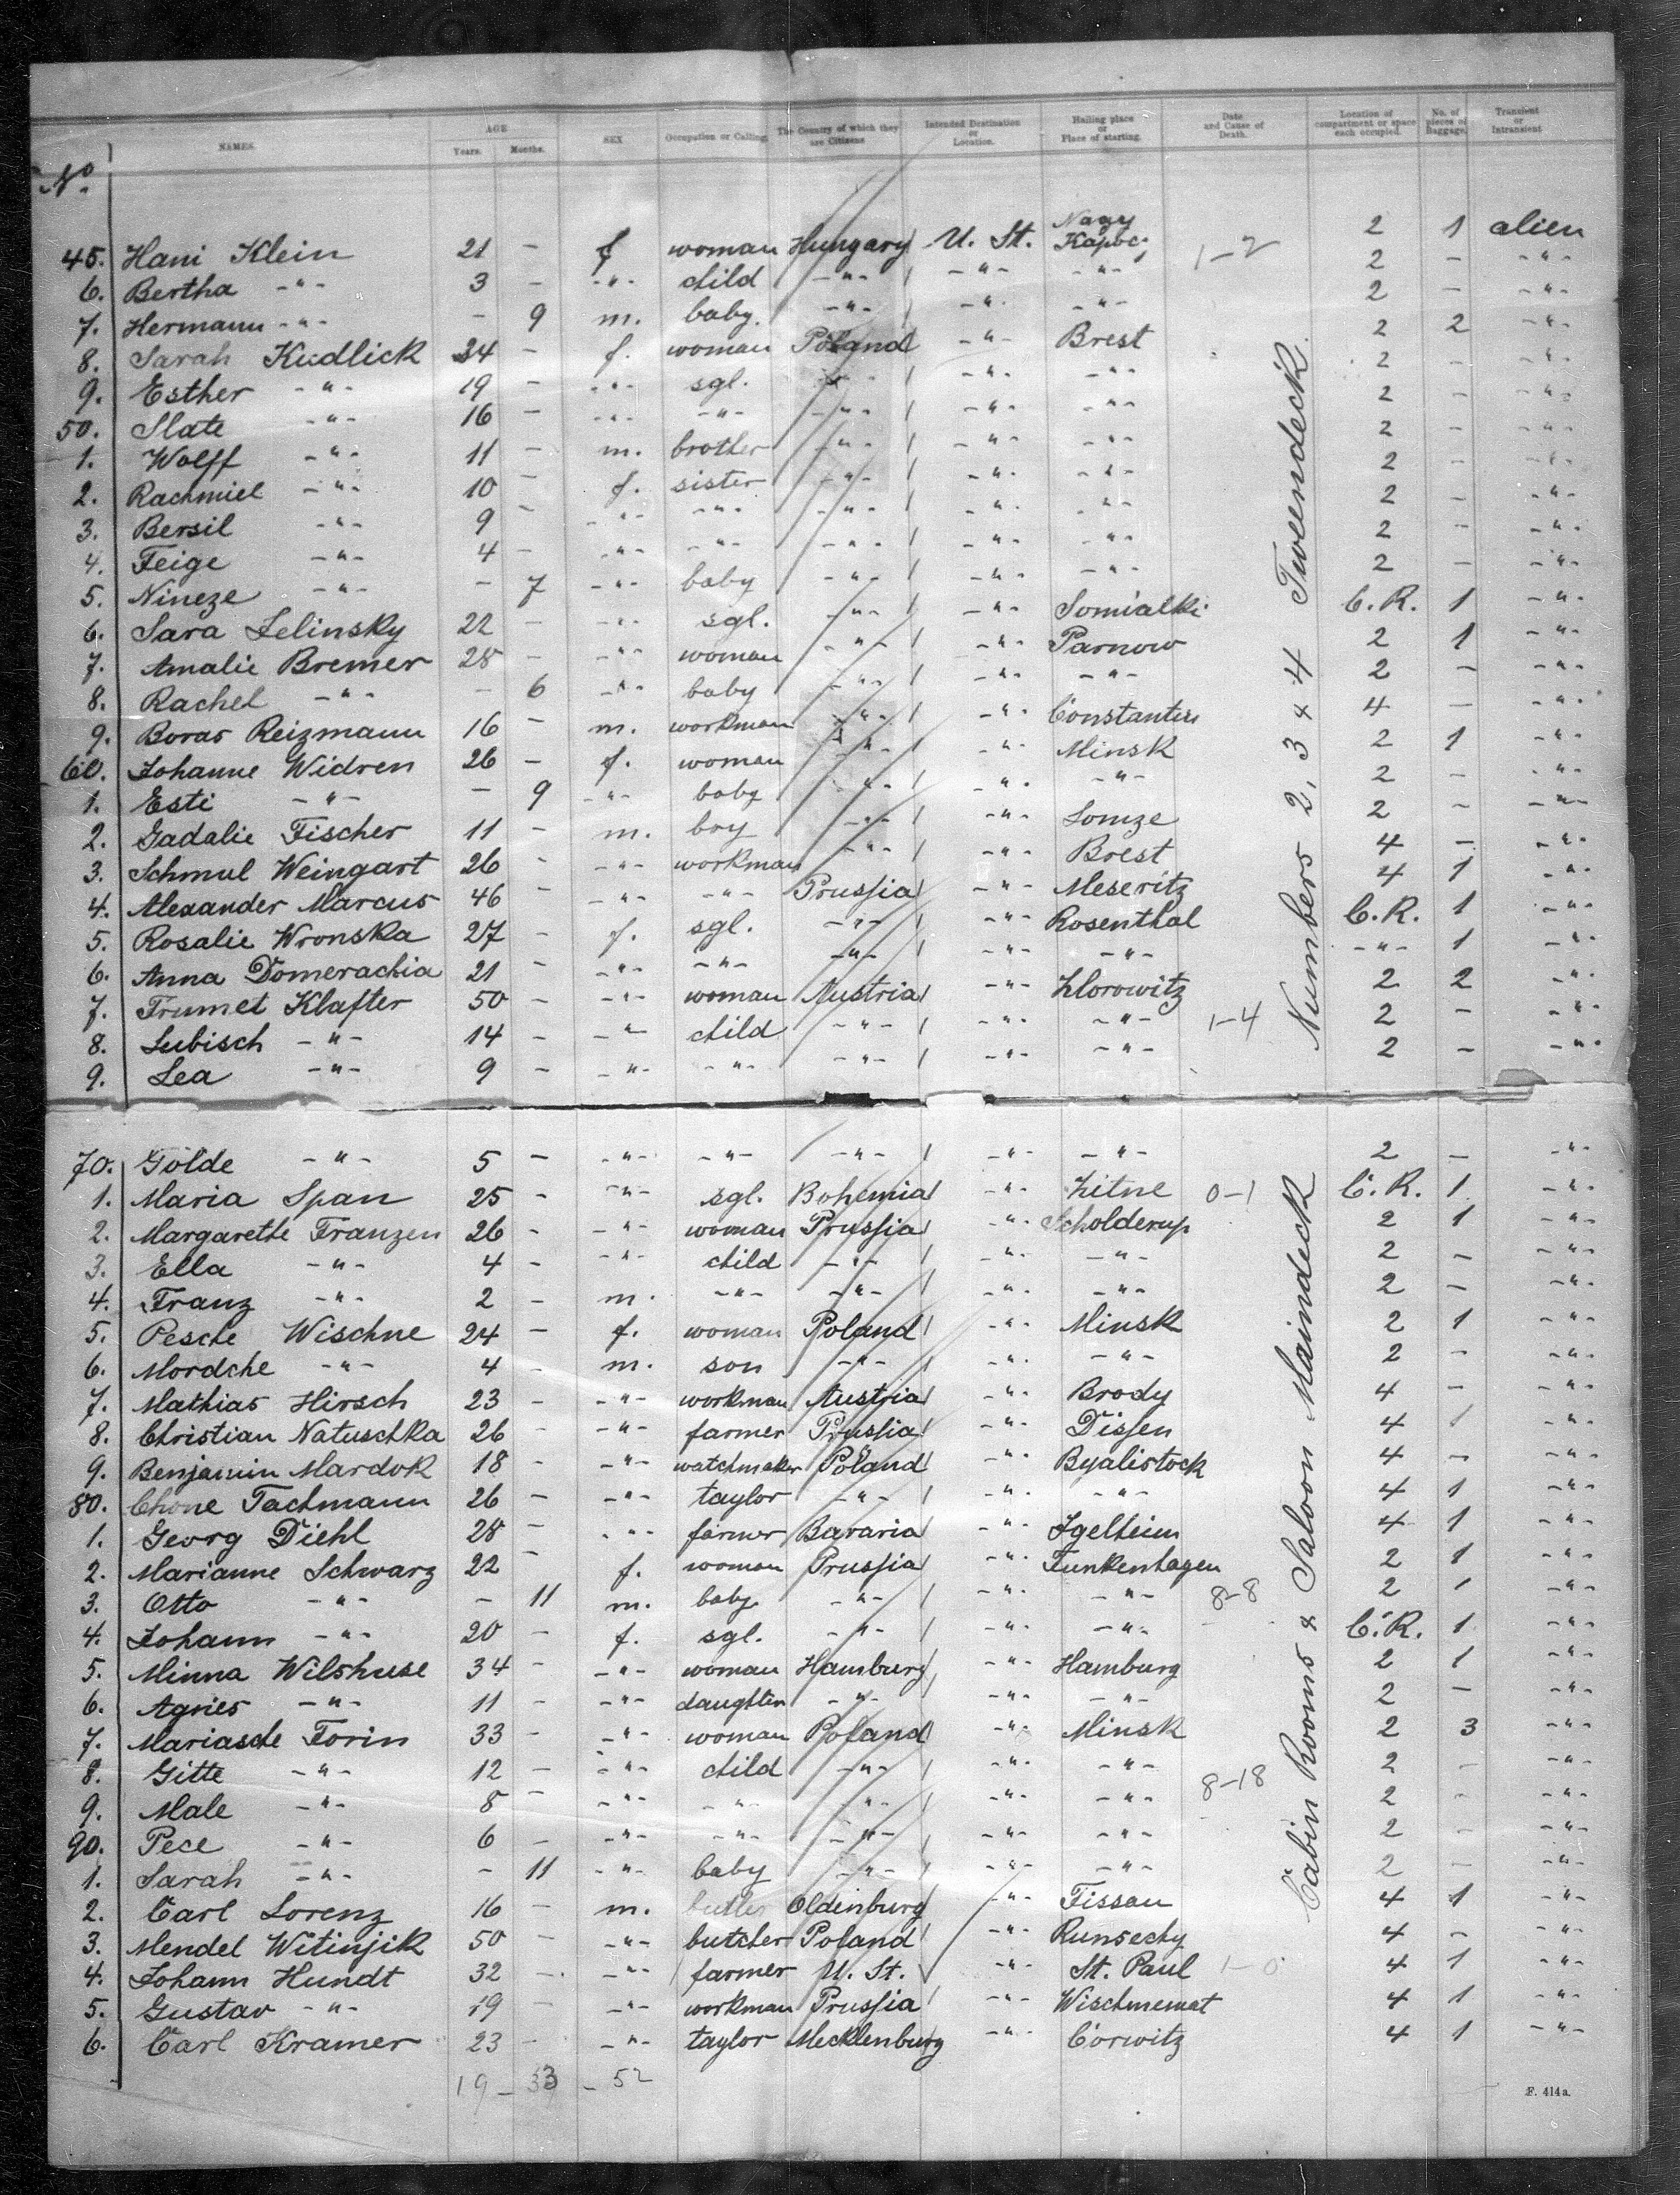 NAMES. AGE Years. Months. SEX Occupation or Calling The Country of which they are Citizens Intended Destination or Location. Hailing place or Place of starting. Date and Cause of Death. Location of compartment or space each occupied. No. of pieces of Baggage. Transient or Intransient
No.
45. Hani Klein 21 - f woman Hungary U. St. Nagy 1-2 2 1 alien
6. Bertha -"- 3 - -"- child -"- -"- -"- 2 - -"-
7. Hermann -"- - 9 m. baby. -"- -"- -"- 2 - -"-
8. Sarah Kudlick 34 - f. woman Poland -"- Brest 2 2 -"-
9. Esther -"- 19 - -"- sgl. -"- -"- -"- 2 - -"-
50. Slate -"- 16 - -"- -"- -"- -"- -"- 2 - -"-
1. Wolff -"- 11 - m. brother -"- -"- -"- 2 - -"-
2. Rachmiel -"- 10 - f. sister -"- -"- -"- 2 - -"-
3. Bersil -"- 9 - -"- -"- -"- -"- -"- 2 - -"-
4. Feige -"- 4 - -"- -"- -"- -"- -"- 2 - -"-
5. Nineze -"- - 7 -"- baby -"- -"- -"- 2 - -"-
6. Sara Selinsky 22 - -"- sgl. -"- -"- Somialki C. R. 1 -"-
7. Amalie Bremer 28 - -"- woman -"- -"- Parnow 2 1 -"-
8. Rachel -"- - 6 -"- baby -"- -"- -"- 2 - -"-
9. Boras Reizmann 16 - m. workman -"- -"- Constantin 4 - -"-
60. Johanne Widren 26 - f. woman -"- -"- Minsk 2 1 -"-
1. Esti -"- - 9 -"- baby -"- -"- -"- 2 - -"-
2. Gadalie Fischer 11 - m. boy -"- -"- Lomze 2 - -"-
3. Schmul Weingart 26 - -"- workman -"- -"- Brest 4 - -"-
4. Alexander Marcus 46 - -"- -"- Prussia -"- Meseritz 4 1 -"-
5. Rosalie Wronska 27 - f. sgl. -"- -"- Rosenthal C. R. 1 -"-
6. Anna Domerachia 21 - -"- -"- -"- -"- -"- -"- 1 -"-
7. Frumet Klafter 50 - -"- woman Austria -"- Zlorowitz 2 2 -"-
8. Lubisch -"- 14 - -"- child -"- -"- -"- 1-4 2 - -"-
9. Lea -"- 9 - -"- -"- -"- -"- -"- 2 - -"-
Numbers 2, 3 & 4 Tweendeck
70. Gölde -"- 5 - -"- -"- -"- -"- -"- 2 - -"-
1. Maria Span 25 - -"- sgl. Bohemia -"- Zitne 0-1 C. R. 1 -"-
2. Margarethe Franzen 26 - -"- woman Prussia -"- Scholderup 2 1 -"-
3. Ella -"- 4 - -"- child -"- -"- -"- 2 - -"-
4. Franz -"- 2 - m. -"- -"- -"- -"- 2 - -"-
5. Pesche Wischne 24 - f. woman Poland -"- Minsk 2 1 -"-
6. Mordche -"- 4 - m. son -"- -"- -"- 2 - -"-
7. Mathias Hirsch 23 - -"- workman Austria -"- Brody 4 - -"-
8. Christian Natuschka 26 - -"- farmer Prussia -"- Dissen 4 1 -"-
9. Benjamin Mardok 18 - -"- watchmaker Poland -"- Byalistock 4 - -"-
80. Chone Tachmann 26 - -"- taylor -"- -"- -"- 4 1 -"-
1. Georg Diehl 28 - -"- farmer Bavaria -"- Igelheim 4 1 -"-
2. Marianne Schwarz 22 - f. woman Prussia -"- Funkenhagen 2 1 -"-
3. Otto -"- - 11 m. baby -"- -"- -"- 8-8 2 1 -"-
4. Johann -"- 20 - f. sgl. -"- -"- -"- C. R. 1 -"-
5. Minna Wilshuse 34 - -"- woman Hamburg -"- Hamburg 2 1 -"-
6. Agnes -"- 11 - -"- daughter -"- -"- -"- 2 - -"-
7. Mariasche Forin 33 - -"- woman Poland -"- Minsk 2 3 -"-
8. Gitte -"- 12 - -"- child -"- -"- -"- 8-18 2 - -"-
9. Male -"- 8 - -"- -"- -"- -"- -"- 2 - -"-
90. Pece -"- 6 - -"- -"- -"- -"- -"- 2 - -"-
1. Sarah -"- - 11 -"- baby -"- -"- -"- 2 - -"-
2. Carl Lorenz 16 - m. Oldenburg -"- Fissau 4 1 -"-
3. Mendel Witinjik 50 - -"- butcher Poland -"- Runsechy 4 - -"-
4. Johann Hundt 32 - -"- farmer U. St. -"- St. Paul 1-0 4 1 -"-
5. Gustav -"- 19 - -"- workman Prussia -"- Wischmemat 4 1 -"-
6. Carl Kramer 23 - -"- taylor Mecklenburg -"- Corwitz 4 1 -"-
Cabin Rooms & Saloon Maindeck
19 - 33 - 52
F. 414 a.